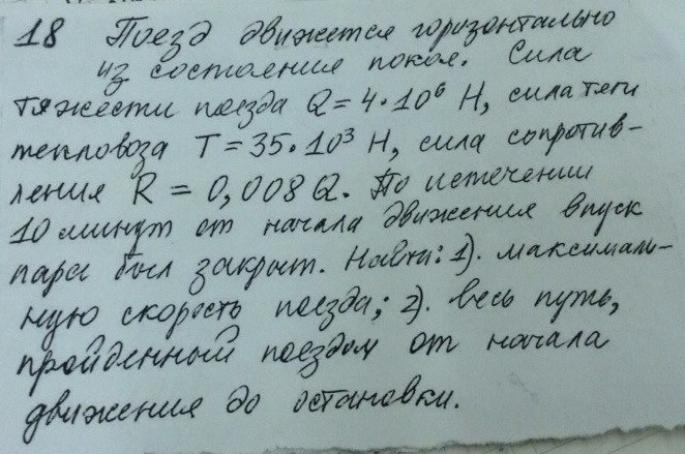 18 Поезд движется горизонтально
из состояния покоя. Сила
тяжести поезда Q = 4·10⁶ Н, сила тяги
тепловоза T = 35·10³ Н, сила сопротив-
ления R = 0,008 Q. По истечении
10 минут от начала движения впуск
пара был закрыт. Найти: 1). максималь-
ную скорость поезда; 2). весь путь,
пройденный поездом от начала
движения до остановки.